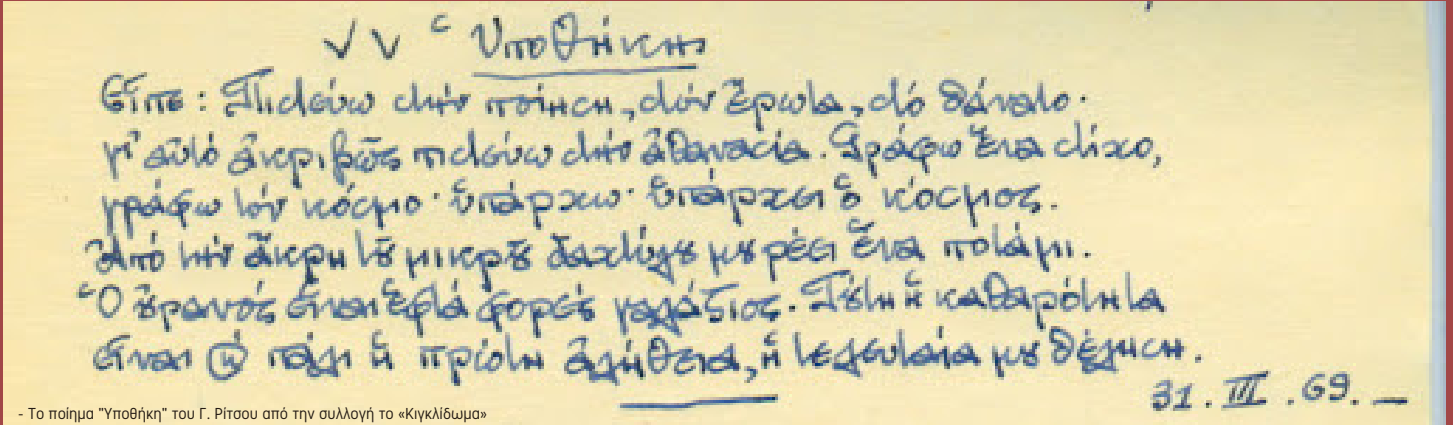 √√ Ὑποθήκη
Εἶπε: Πιστεύω στὴν ποίηση, στὸν ἔρωτα, στὸ θάνατο·
γι' αὐτὸ ἀκριβῶς πιστεύω στὴν ἀθανασία. Γράφω ἕνα στίχο,
γράφω τὸν κόσμο· ὑπάρχω· ὑπάρχει ὁ κόσμος.
Ἀπὸ τὴν ἄκρη τοῦ μικροῦ δαχτύλου μου ρέει ἕνα ποτάμι.
Ὁ οὐρανὸς εἶναι ἑφτὰ φορὲς γαλάζιος. Τούτη ἡ καθαρότητα
εἶναι καὶ πάλι ἡ πρώτη ἀλήθεια, ἡ τελευταία μου θέληση.
31. III. 69. —
- Το ποίημα "Υποθήκη" του Γ. Ρίτσου από την συλλογή το «Κιγκλίδωμα»